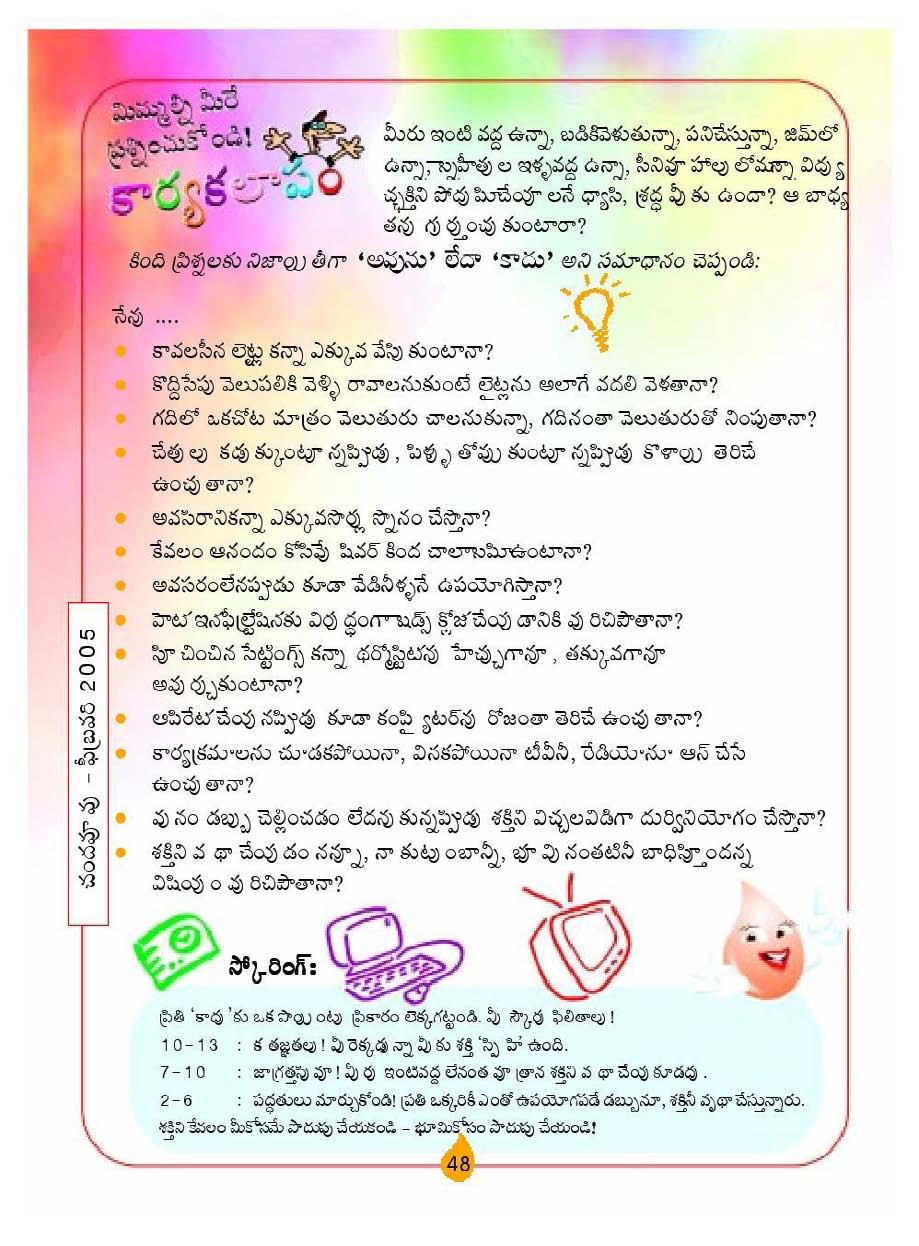 మిమ్మల్ని మీరే
ప్రశ్నించుకోండి!
కార్యకలాపం
మీరు ఇంటి వద్ద ఉన్నా, బడికివెళుతున్నా, పనిచేస్తున్నా, జిమ్‌లో
ఉన్నా, స్నేహితు ల ఇళ్ళవద్ద ఉన్నా, సినివూ హాలు లోవున్నా విద్యు
చ్ఛక్తిని పోదు పుచేయూ లనే ధ్యాస, శ్రద్ధ వీు కు ఉందా? ఆ బాధ్య
తను గు ర్తుంచు కుంటారా?
కింది ప్రశ్నలకు నిజాయి తీగా ‘అవును’ లేదా ‘కాదు’ అని సమాధానం చెప్పండి:
నేను ....
కావలసిన లైట్ల కన్నా ఎక్కువ వేసు కుంటానా?
కొద్దిసేపు వెలుపలికి వెళ్ళి రావాలనుకుంటే లైట్లను అలాగే వదలి వెళతానా?
గదిలో ఒకచోట మాత్రం వెలుతురు చాలనుకున్నా, గదినంతా వెలుతురుతో నింపుతానా?
చేతు లు కడు క్కుంటూ న్నప్పుడు , పళ్ళు తోవు కుంటూ న్నప్పుడు కొళాయి తెరిచే
ఉంచు తానా?
అవసరానికన్నా ఎక్కువసార్లు స్నానం చేస్తానా?
కేవలం ఆనందం కోసవేు షవర్ కింద చాలాసేపుఉంటానా?
అవసరంలేనప్పుడు కూడా వేడినీళ్ళనే ఉపయోగిస్తానా?
హీట్ ఇన్‌ఫిల్ట్రేషన్‌కు విరు ద్ధంగా షేడ్స్ క్లోజ్ చేయు డానికి వు రిచిపోతానా?
సూ చించిన సెట్టింగ్స్ కన్నా థర్మోస్టాట్‌ను హెచ్చుగానూ , తక్కువగానూ
అవు ర్చుకుంటానా?
ఆపరేట్ చేయు నప్పుడు కూడా కంప్యూటర్‌ను రోజంతా తెరిచే ఉంచు తానా?
కార్యక్రమాలను చూడకపోయినా, వినకపోయినా టీవీనీ, రేడియోనూ ఆన్ చేసే
ఉంచు తానా?
వు నం డబ్బు చెల్లించడం లేదను కున్నప్పుడు శక్తిని విచ్చలవిడిగా దుర్వినియోగం చేస్తానా?
శక్తిని వ థా చేయు డం నన్నూ, నా కుటుంబాన్నీ, భూ వు నంతటినీ బాధిస్తుందన్న
విషయు ం వు రిచిపోతానా?
చందవూ వు - ఫిబ్రవరి 2005
స్కోరింగ్:
ప్రతి ‘కాదు ’కు ఒక పాయి ంటు ప్రకారం లెక్కగట్టండి. వీు స్కోరు ఫలితాలు !
10-13 : క తజ్ఞతలు ! వీు రెక్కడు న్నా వీు కు శక్తి ‘స్పృ హ’ ఉంది.
7-10 : జాగ్రత్తసు వూ ! వీు రు ఇంటివద్ద లేనంత వూ త్రాన శక్తిని వ థా చేయు కూడదు .
2-6 : పద్ధతులు మార్చుకోండి! ప్రతి ఒక్కరికీ ఎంతో ఉపయోగపడే డబ్బునూ, శక్తినీ వృథా చేస్తున్నారు.
శక్తిని కేవలం మీకోసమే పొదుపు చేయకండి – భూమికోసం పొదుపు చేయండి!
48